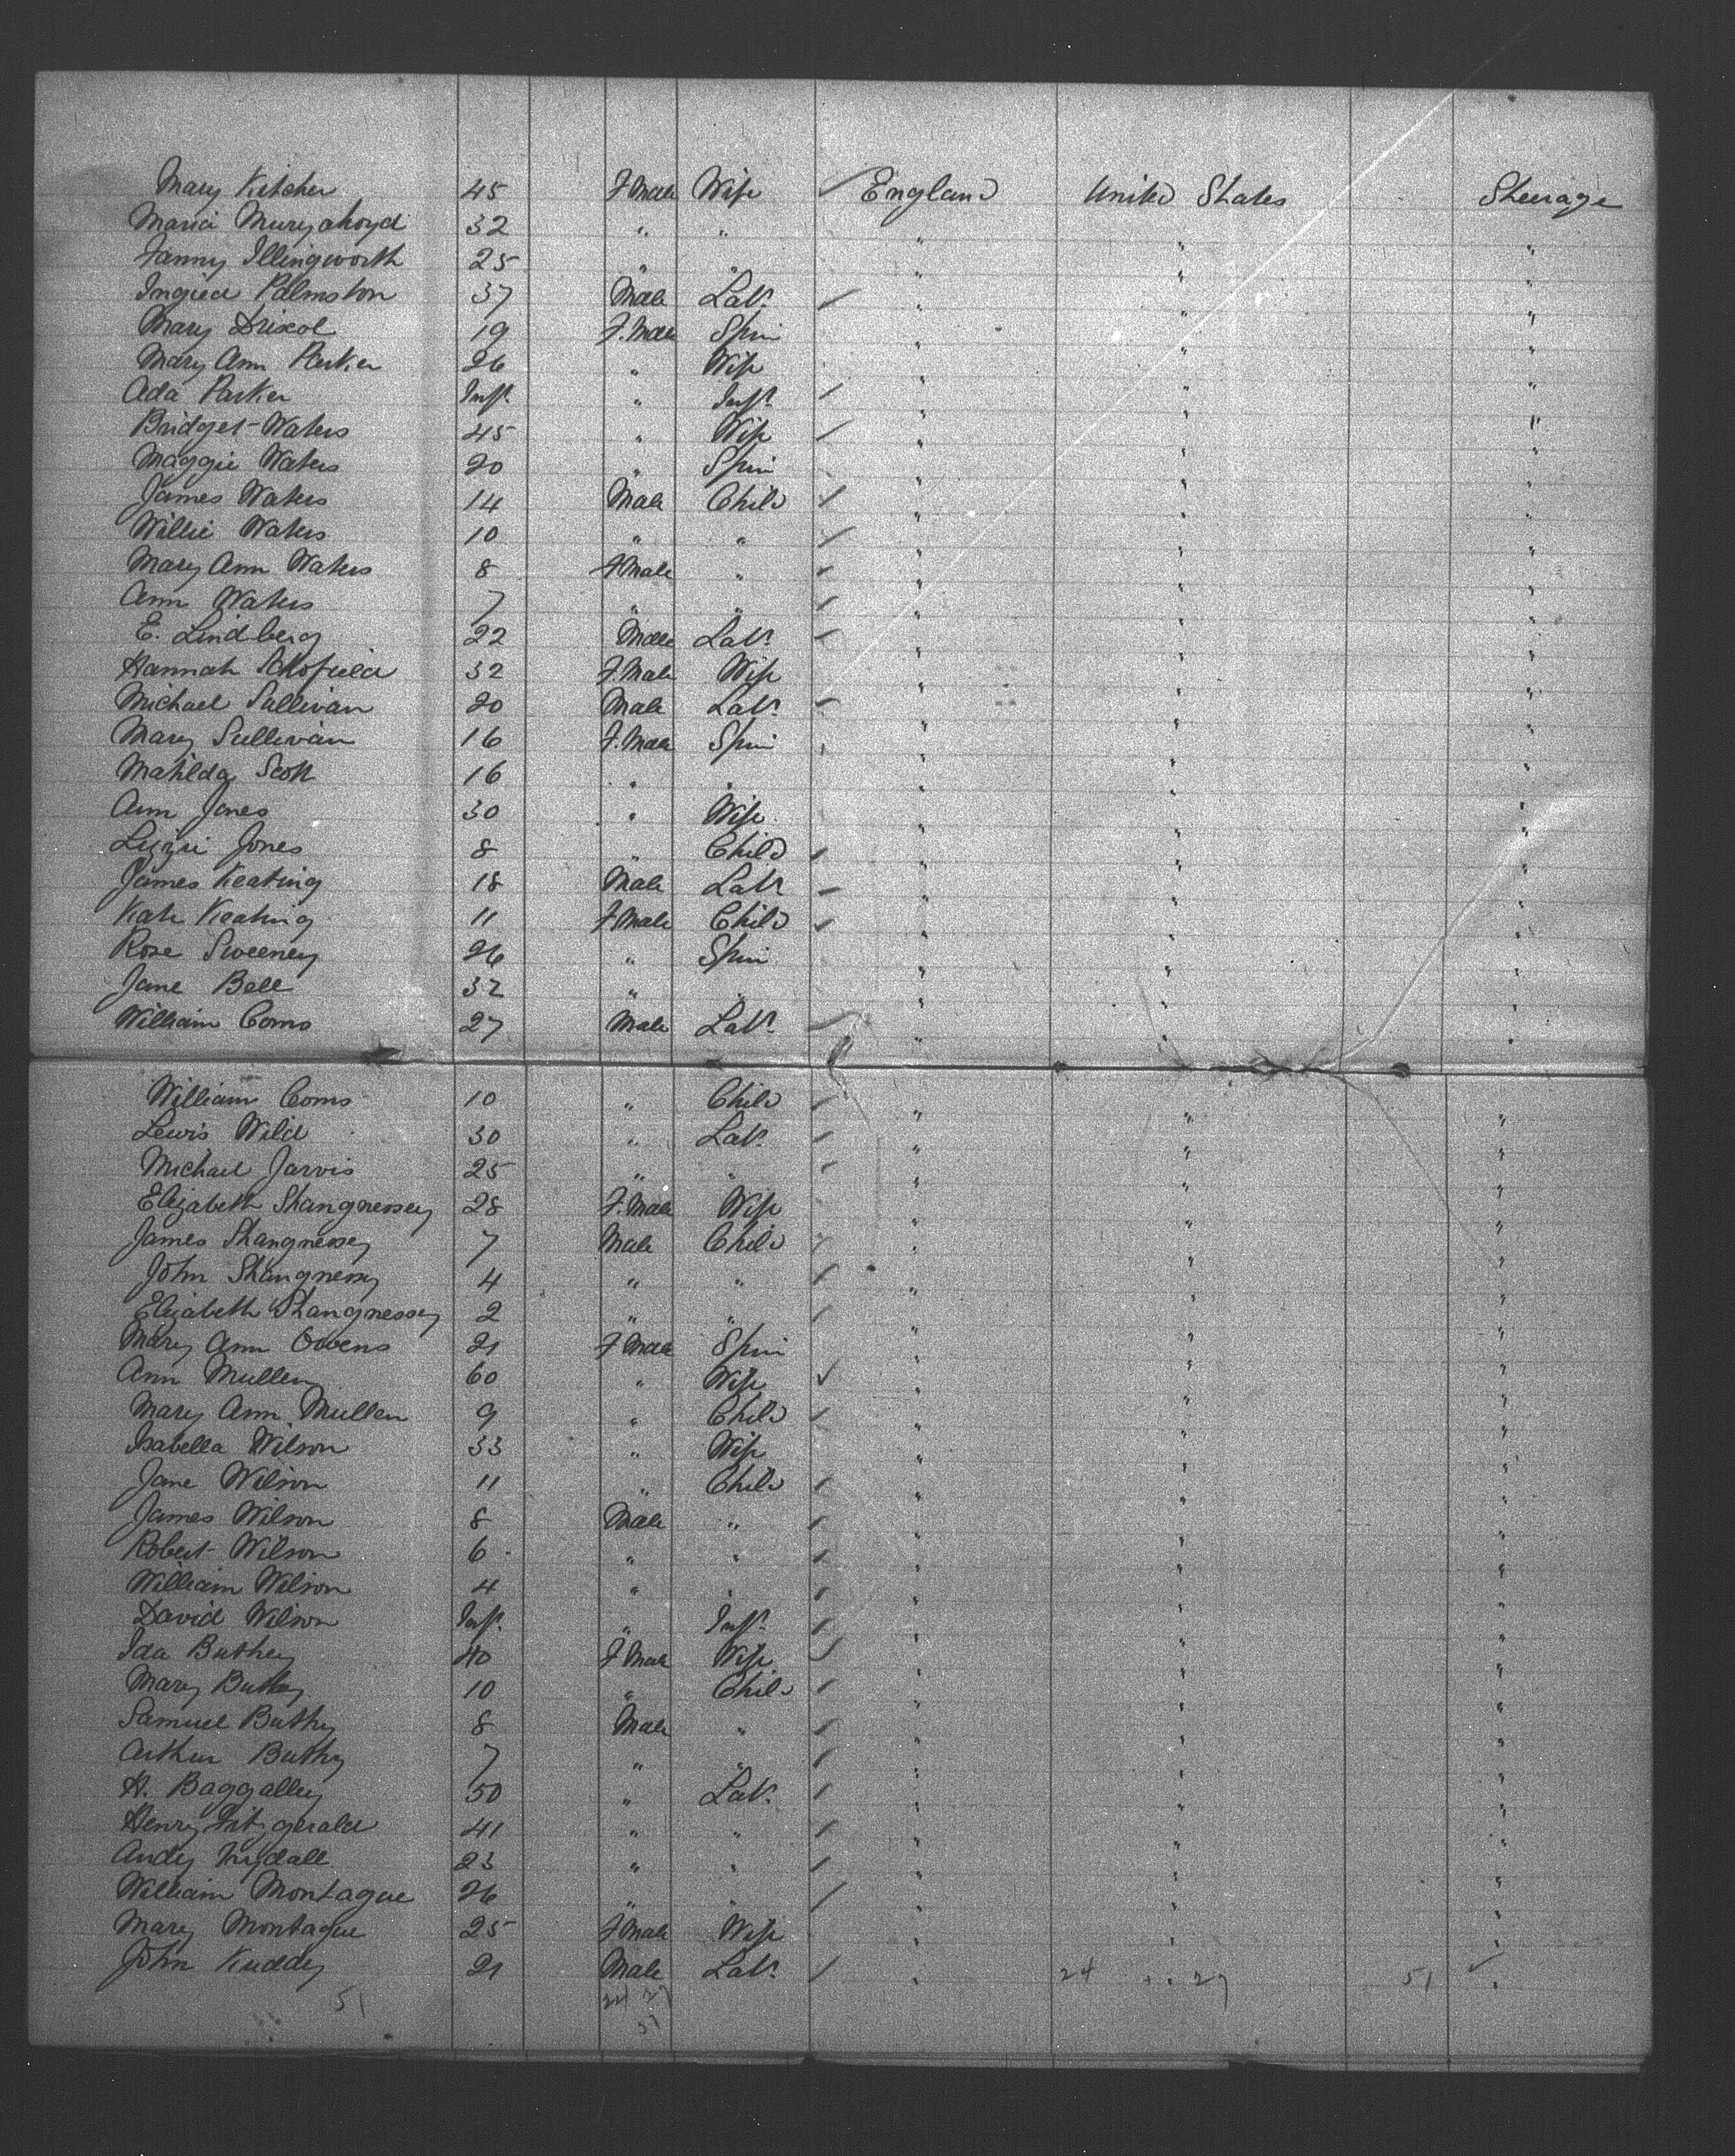 Mary Kitcher 45 F Male Wife ✓ England United States Steerage
Maria 32 " " " " "
Fanny Illingworth 25 " " " " "
Palmston 37 Male Labr " " "
Mary Driscol 19 F. Male Spin " " "
Mary Ann Parker 26 " Wife " " "
Ada Parker Inft " Inft " " "
Bridget Waters 45 " Wife " " "
Maggie Waters 20 " Spin " " "
James Waters 14 Male Child " " "
Willie Waters 10 " " " " "
Mary Ann Waters 8 F Male " " " "
Ann Waters 7 " " " " "
E. Lindberg 22 Male Labr " " "
Hannah Schofield 32 F. Male Wife " " "
Michael Sullivan 20 Male Labr " " "
Mary Sullivan 16 F. Male Spin " " "
Matilda Scott 16 " " " " "
Ann Jones 30 " Wife " " "
Lizzie Jones 8 " Child " " "
James Keating 18 Male Labr " " "
Kate Keating 11 F Male Child " " "
Rose Sweeney 26 " Spin " " "
Jane Bell 32 " " " " "
William Coms 27 Male Labr " " "
William Coms 10 " Child " " "
Lewis Wild 30 " Labr " " "
Michael Jarvis 25 " " " " "
Elizabeth Shangnessey 28 F. Male Wife " " "
James Shangnessey 7 Male Child " " "
John Shangnessy 4 " " " " "
Elizabeth Shangnessey 2 " " " " "
Mary Ann Owens 21 F Male Spin " " "
Ann Mullen 60 " Wife ✓ " " "
Mary Ann Mullen 9 " Child " " "
Isabella Wilson 33 " Wife " " "
Jane Wilson 11 " Child " " "
James Wilson 8 Male " " " "
Robert Wilson 6 " " " " "
William Wilson 4 " " " " "
David Wilson Inft " Inft " " "
Ida Buthey 40 F Male Wife " " "
Mary Buthey 10 " Child " " "
Samuel Buthy 8 Male " " " "
Arthur Buthy 7 " " " " "
H. Baggalley 50 " Labr " " "
Henry Fitzgerald 41 " " " " "
Andy 23 " " " " "
William Montague 26 " " " " "
Mary Montague 25 F Male Wife " " "
John Kuddy 21 Male Labr " 24 27 51 "
51 24 27
51